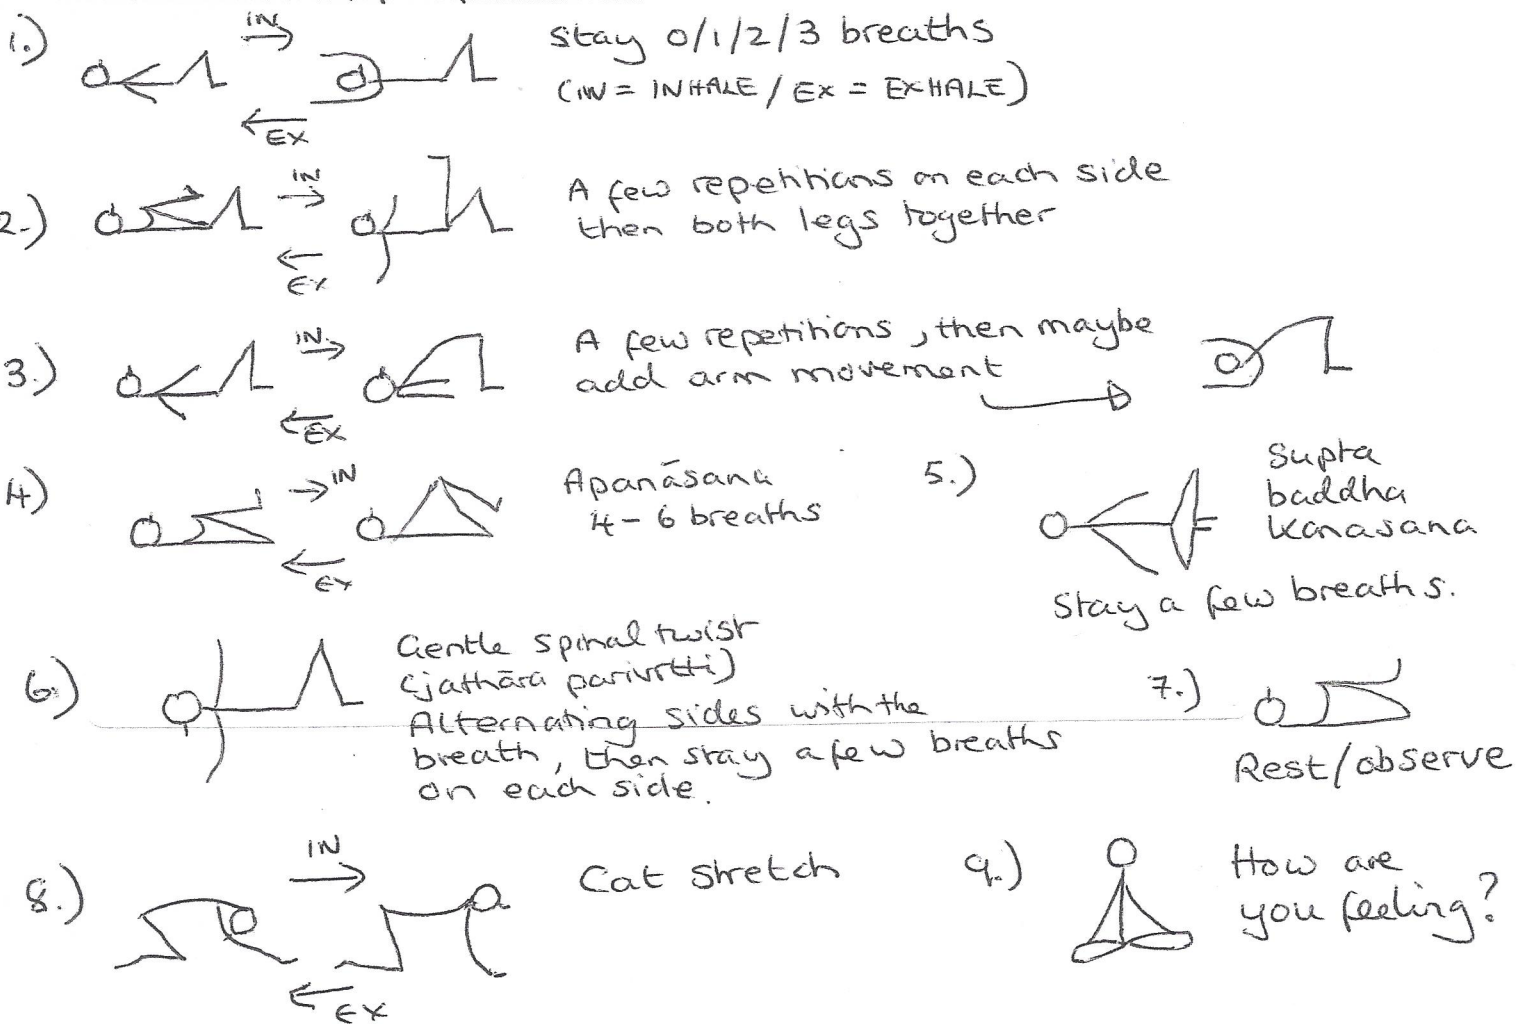 1.) IN EX Stay 0/1/2/3 breaths
(IN = INHALE / EX = EXHALE)
2.) IN EX A few repetitions on each side
then both legs together
3.) IN EX A few repetitions, then maybe
add arm movement
4) IN EX Apanāsana
4-6 breaths
5.) Supta
baddha
Konasana
Stay a few breaths.
6.) Gentle spinal twist
(jathāra parivrtti)
Alternating sides with the
breath, then stay a few breaths
on each side.
7.) Rest/observe
8.) IN EX Cat stretch
9.) How are
you feeling?